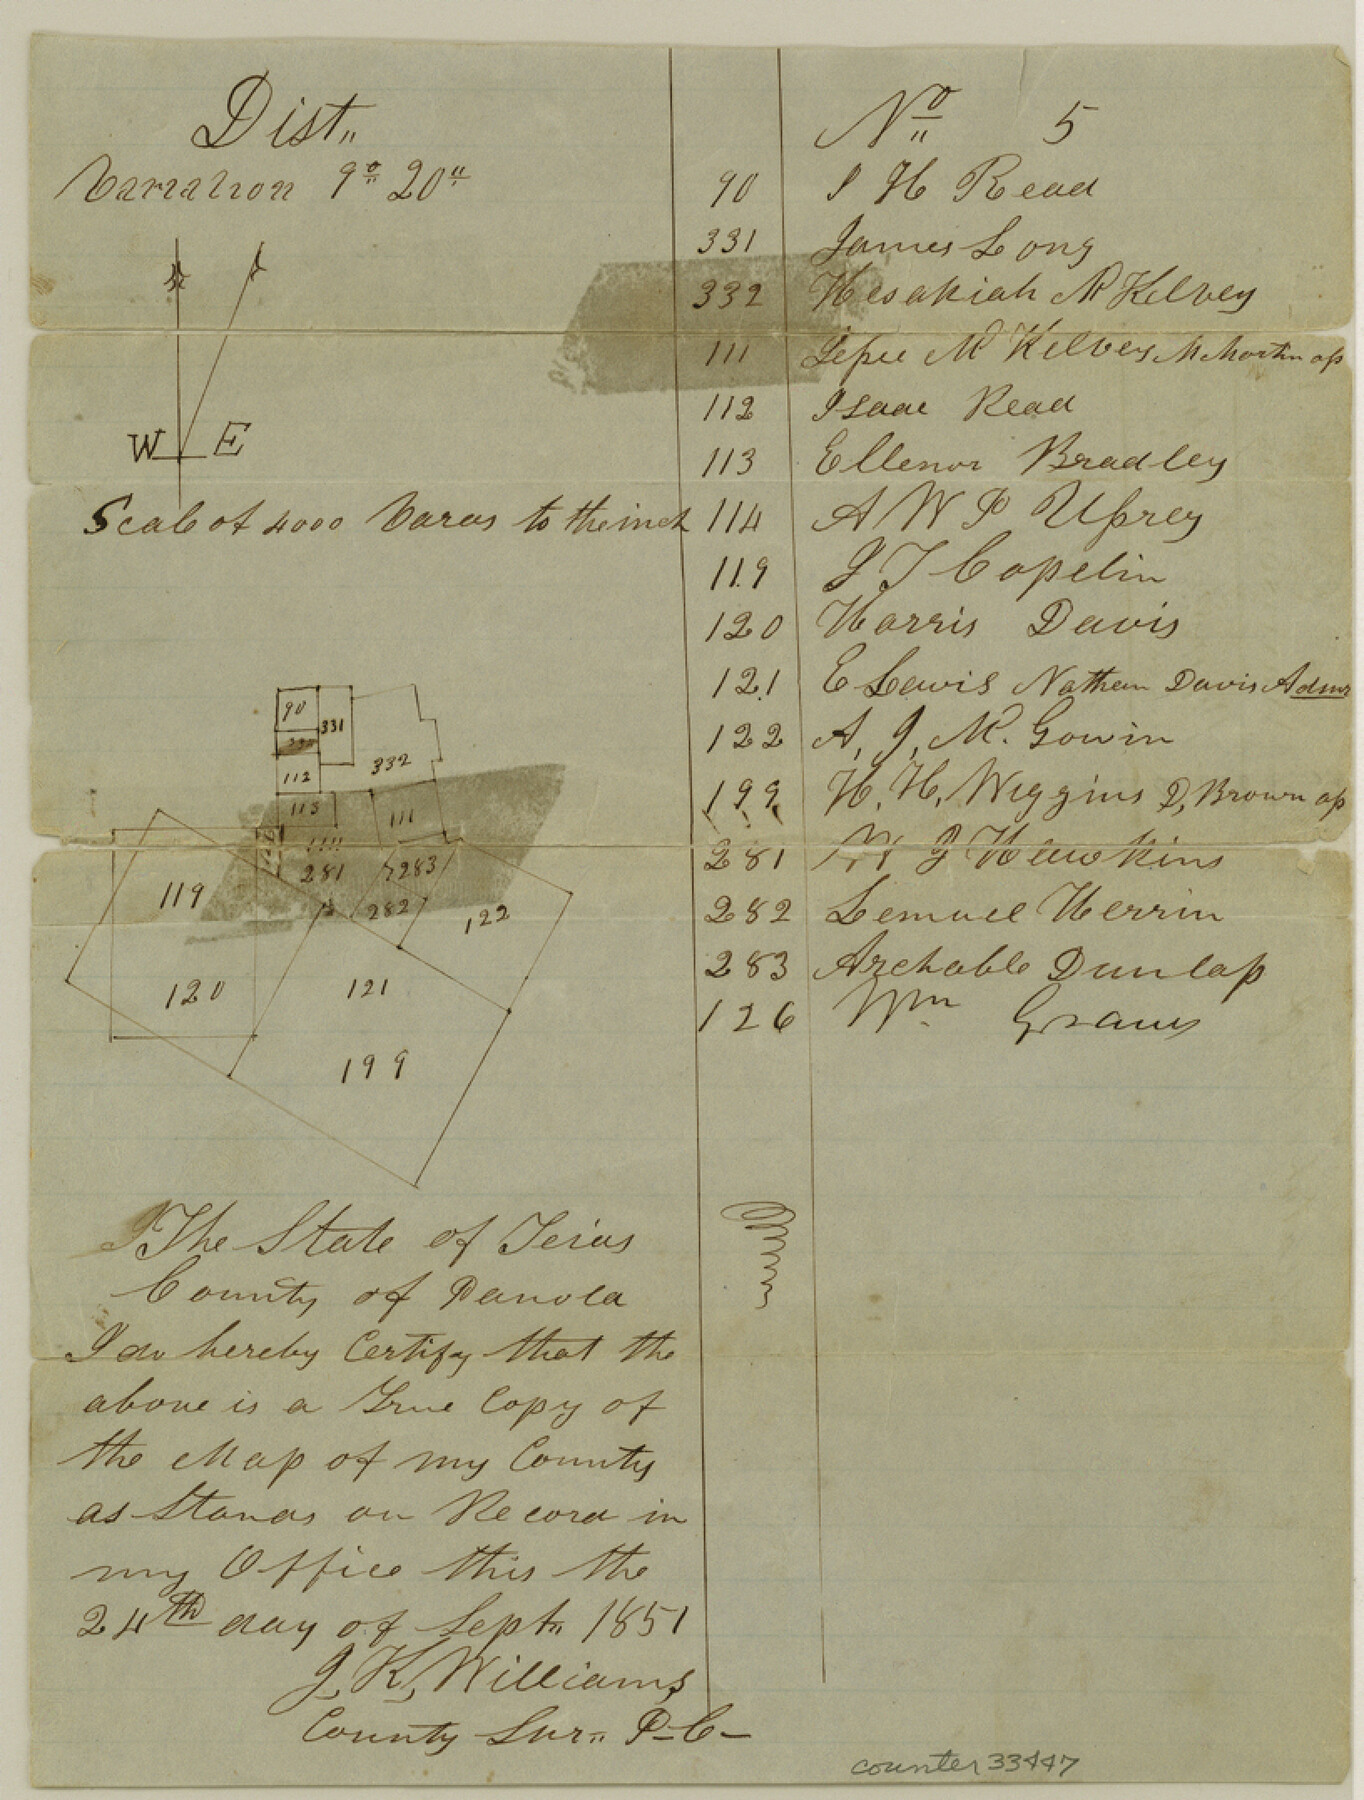 Dist„ No 5
Variation 9° 20"
90 I H Read
331 James Long
332 Hesakiah McKelvey
111 McKelvey M Martin ap
112 Isaac Read
113 Ellenor Bradley
114 A W P Uprey
119 J T Copelin
120 Harris Davis
121 E Lewis Nathan Davis Admr
122 A, J, Mc. Gowin
199 H. H. Wiggins D, Brown ap
281 J Hawkins
282 Lemuel Herrin
283 Archable Dunlap
126 Wm
W E
Scale of 4000 Varas to the inch
90
331
332
112
113
111
281
283
282
122
119
120
121
199
The State of Texas
County of Panola
I do hereby Certify that the
above is a True Copy of
the Map of my County
as Stands on Record in
my Office this the
24th day of Sept„ 1851
J, K, Williams
County Sur„ P-C-
counter 33447